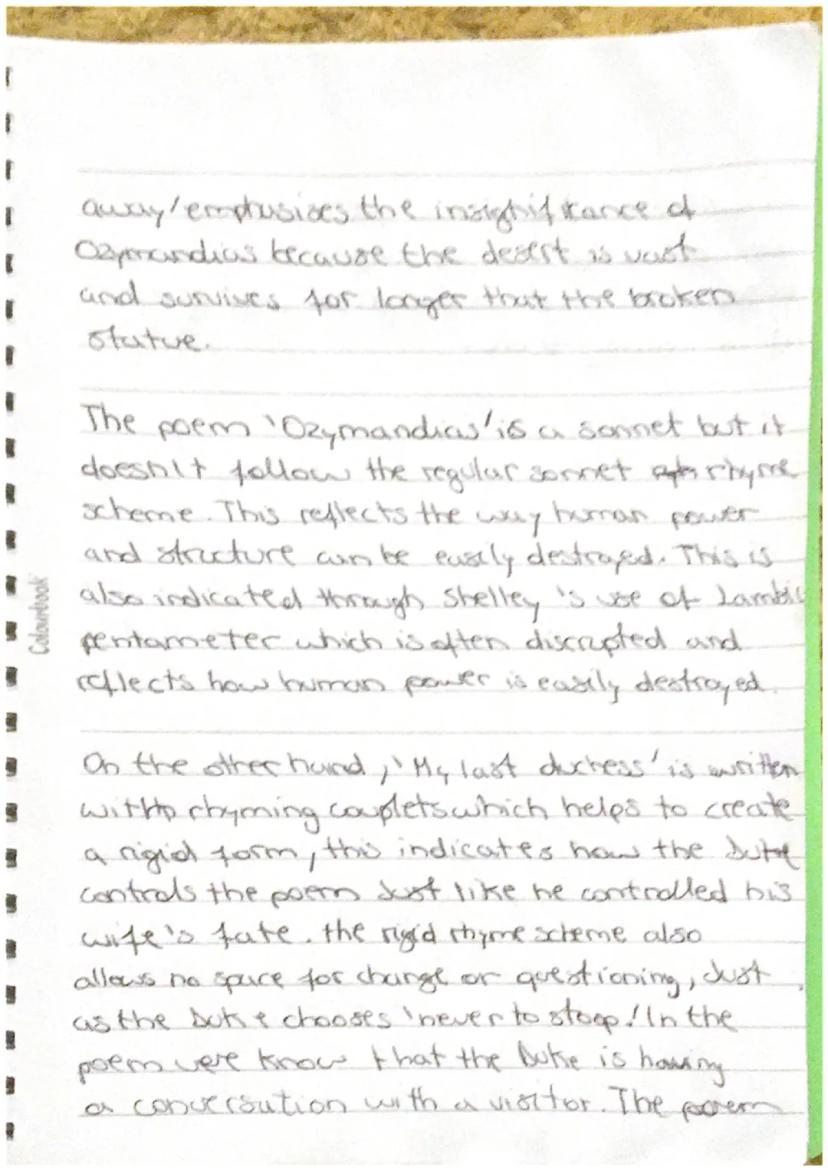 away'emphasises the insighificance of
Ozymandias because the desert is vast
and survives for longer that the broken
statue.
The poem 'Ozymandias' is a sonnet but it
doesn't follow the regular sonnet rhyme
scheme. This reflects the way human power
and structure can be easily destroyed. This is
also indicated through Shelley's use of Iambic
pentameter which is often discrupted and
reflects how human power is easily destroyed.
On the other hand, 'My last duchess' is written
with rhyming couplets which helps to create
a rigid form, this indicates how the Duke
controls the poem Just like he controlled his
wife's fate. the rigid rhyme scheme also
allows no space for change or questioning, Just
as the Duke chooses 'never to stoop'. In the
poem were know that the Duke is having
a conversation with a visitor. The poem
Colourbook